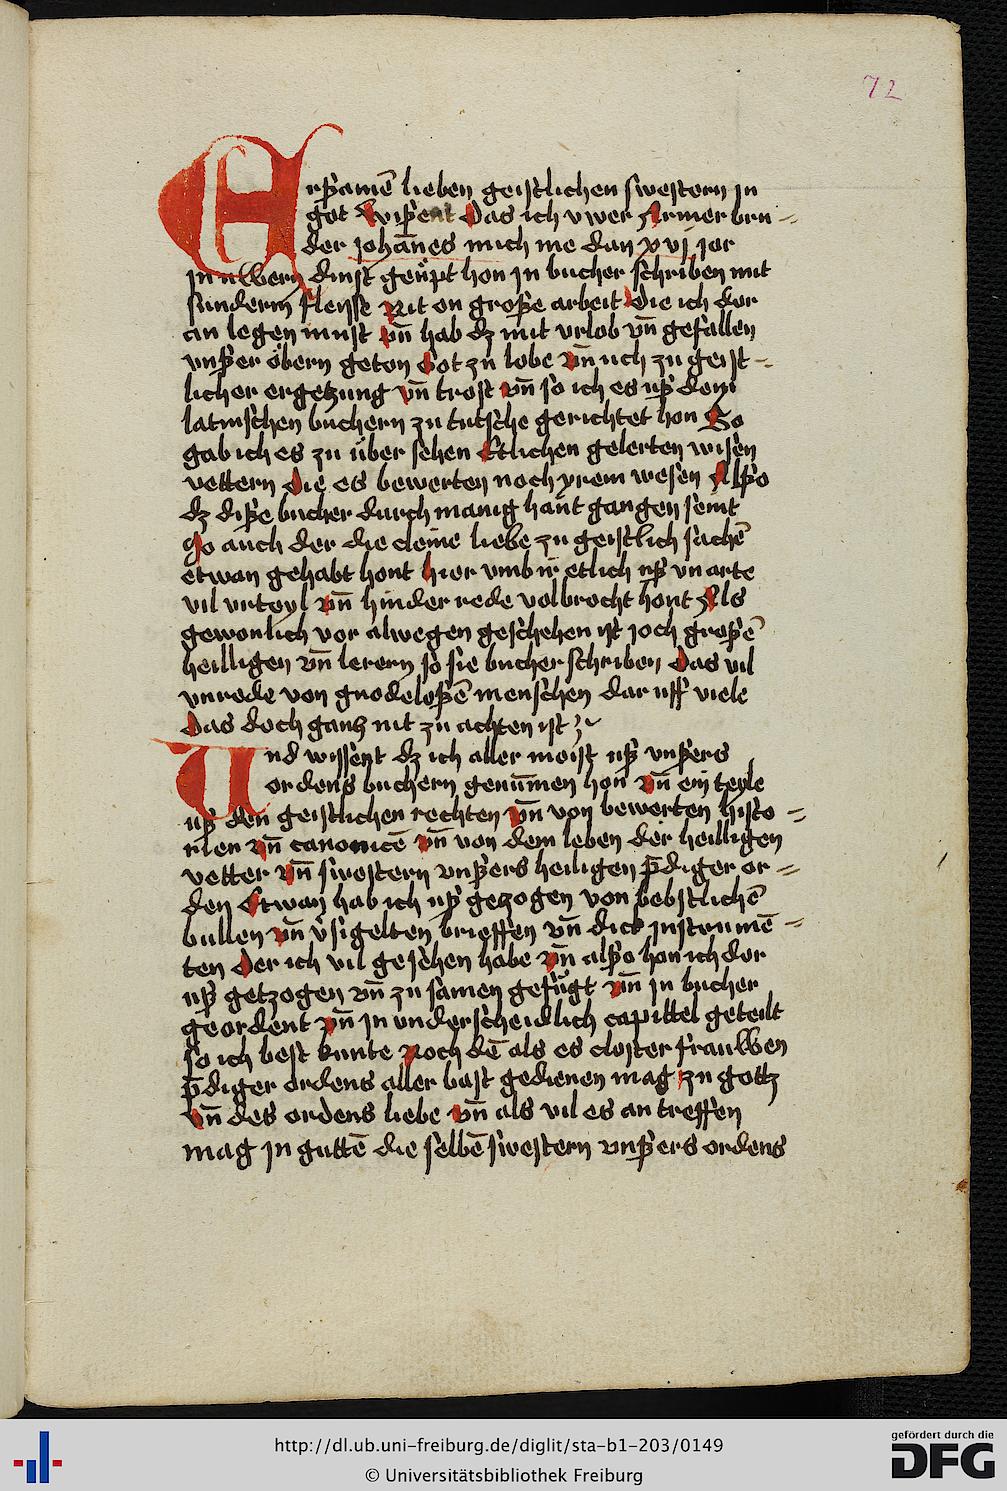 72
Erßamē lieben geistlichen swestern jn
got Wißent Das ich vwer Armer bru=
der johānes mich me dan xvj jor
jn uwern dinst geupt hon jn bucher schriben mit
sunderm fleisse Nit on große arbeit Die ich dor
an legen must vn̄ hab dz mit vrlob vn̄ gefallen
vnßer öbern geton Got zu lobe vn̄ uch zu geist=
licher ergetzung vn̄ trost vn̄ so ich es uß dem
latinschen buchern zu tutsche gerichtet hon So
gab ich es zu über sehen Etlichen gelerten wisen
vettern Die es bewerten noch yrem wesen Alßo
dz diße bucher durch manig hant gangen seint
So auch der die cleine liebe zu geistlich sachē
etwan gehabt hont hier vmb ir etlich uß vn arte
vil vrteyl vn̄ hinder rede volbrocht hont Als
gewonlich vor alwegen geschehen ist joch großē
heilligen vn̄ lerern so sie bucher schriben Das vil
vnrede von gnodeloßē menschen dar uff viele
Das doch gantz nit zu achten ist
Vnd wissent dz ich aller meist uß vnßers
ordens buchern genūmen hon vn̄ ein teyle
uß den geistlichen rechten vn̄ von bewerten histo=
rien vn̄ canonicē vn̄ von dem leben der heilligen
vetter vn̄ swestern vnßers heiligen p̄diger or=
den Etwan hab ich uß gezogen von bebstlichē
bullen vn̄ v̄sigelten brieffen vn̄ dick jnstrumē=
ten Der ich vil gesehen habe vn̄ alßo hon ich dor
uß getzogen vn̄ zu samen gefügt vn̄ jn bucher
geordent vn̄ jn vnderscheidlich capittel geteilt
so ich best kunte Noch dē als es closter frauwen
p̄diger ordens aller bast gedienen mag zu gottz
vn̄ des ordens liebe vn̄ als vil es an treffen
mag jn guttē die selbē swestern vnßers ordens
http://dl.ub.uni-freiburg.de/diglit/sta-b1-203/0149
© Universitätsbibliothek Freiburg
gefördert durch die
DFG